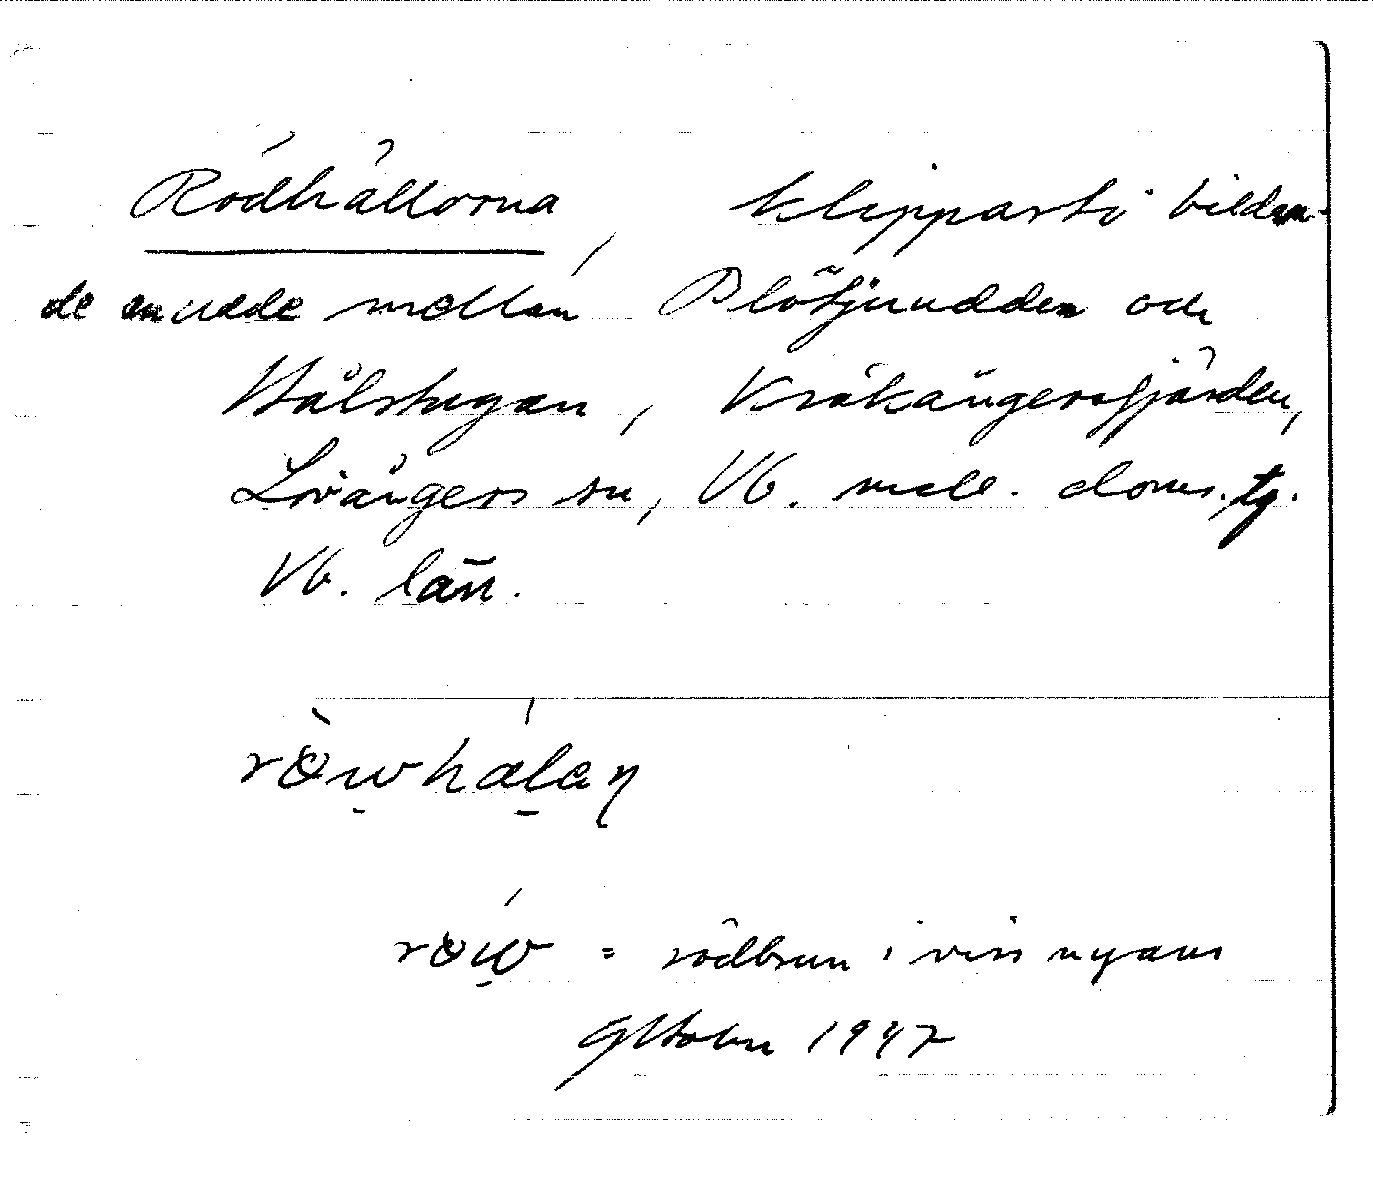 Rödhällorna, klipparti bildan-
de en udde mellan Plötjuudden och
Hålstugan, Kråkångersfjärden,
Lövångers sn, Vb. mell. doms. tg.
Vb. län.
röu̯häl̠an
röu̯ = rödbrun i viss nyans
GHolm 1947